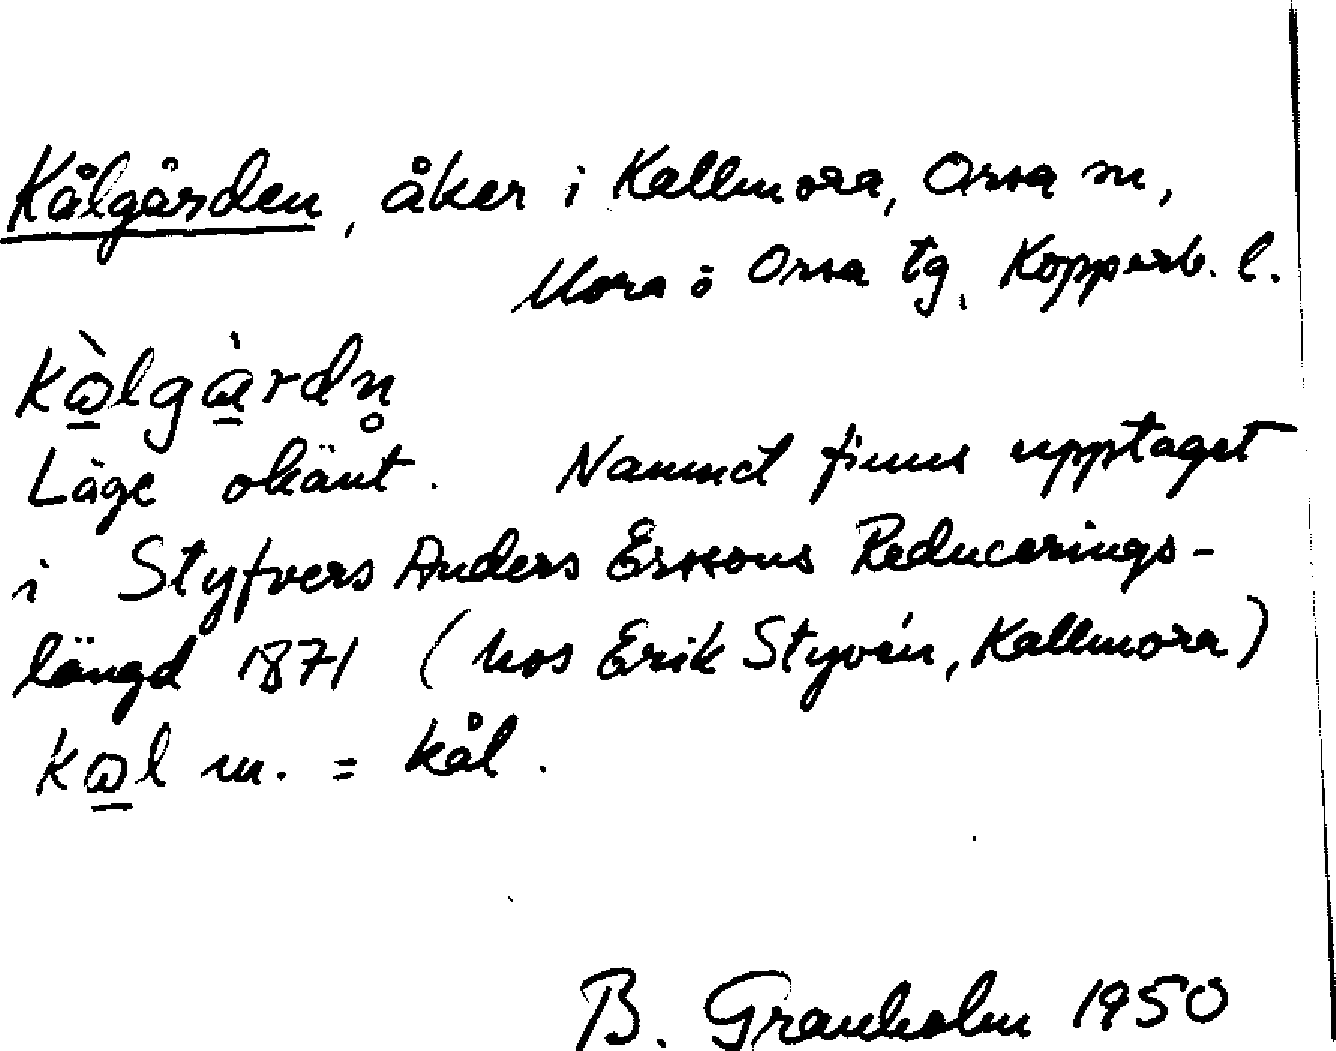 Kålgården, åker i Kallmora, Orsa sn,
Mora o Orsa tg, Kopparb. l.
kàlgàrdn̥
Läge okänt. Namnet finns upptaget
i Styfvers Anders Erssons Reducerings-
längd 1871 (hos Erik Styvén, Kallmora)
kal m. = kål.
B. Granholm 1950